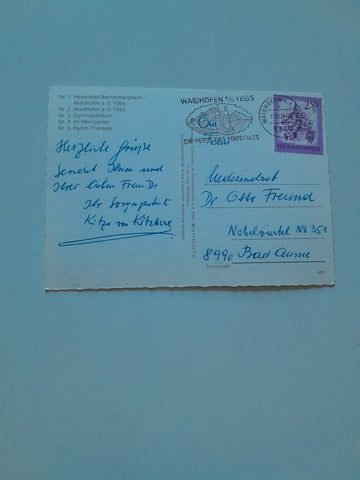 Nr. 1 Heilanstalt Buchenbergheim –
Waidhofen a. d. Ybbs
Nr. 2 Waidhofen a. d. Ybbs
Nr. 3 Gymnastikraum
Nr. 4 Im Heimgarten
Nr. 5 Hydro-Therapie
WAIDHOFEN A/D YBBS
DIE PERLE DES YBBSTALES
WAIDHOFEN
2.50
REPUBLIK ÖSTERREICH
Herzliche Grüsse
sendet Ihnen und
Ihrer lieben Frau Dr.
Ihr
Kitzbg
Dr Otto Freund
Nobelviertel No 351
8990 Bad Aussee
Postleitzahl